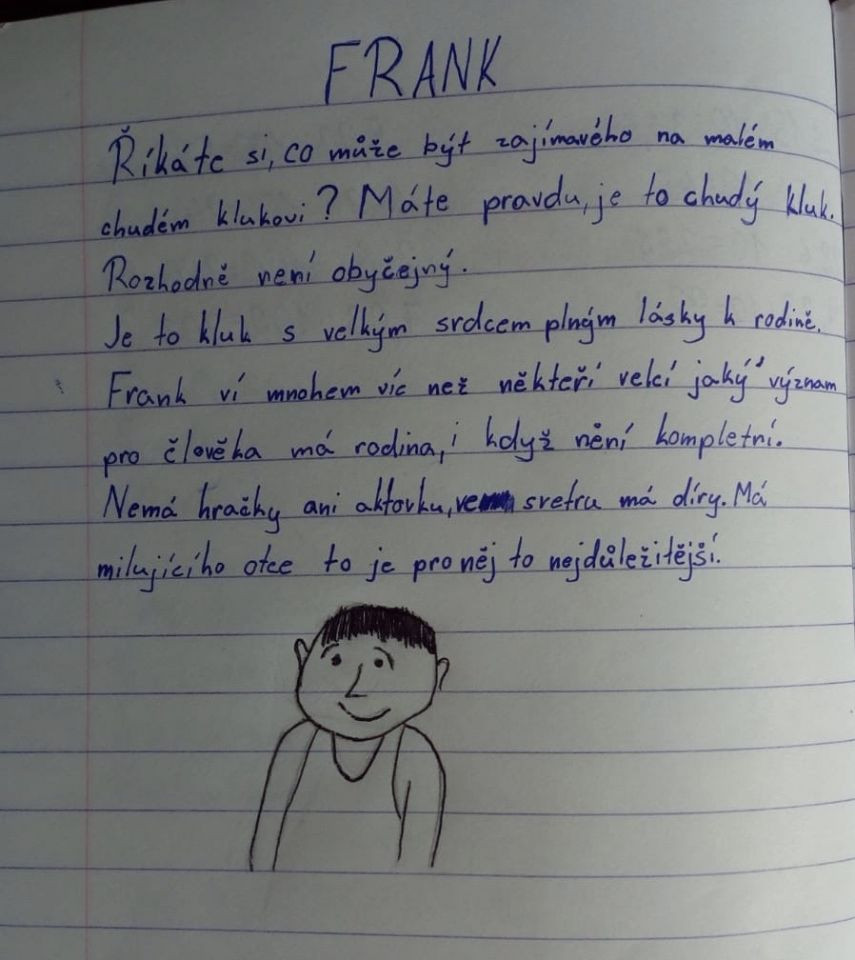 FRANK
Říkáte si, co může být zajímavého na malém
chudém klukovi? Máte pravdu, je to chudý kluk.
Rozhodně není obyčejný.
Je to kluk s velkým srdcem plným lásky k rodině.
Frank ví mnohem víc než někteří velcí jaký význam
pro člověka má rodina, i když nění kompletní.
Nemá hračky ani aktovku, ve svetru má díry. Má
milujícího otce to je pro něj to nejdůležitější.